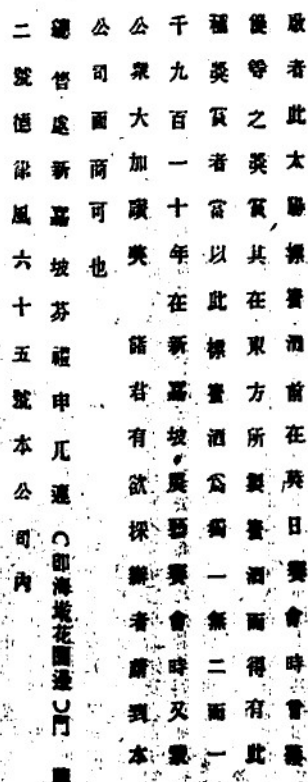 啟者此太標賓酒前在英日賽會時曾
優等之獎賞其在東方所製賓酒而得有此
種獎賞者當以此標賓酒為獨一無二而一
千九百一十年在新嘉坡藝賽會時又蒙
公衆大加讚美 諸君有欲採辦者請到本
公司面商可也
總管處新嘉坡芬禮申兀連(即海墘花園邊)門
二號德律風六十五號本公司內